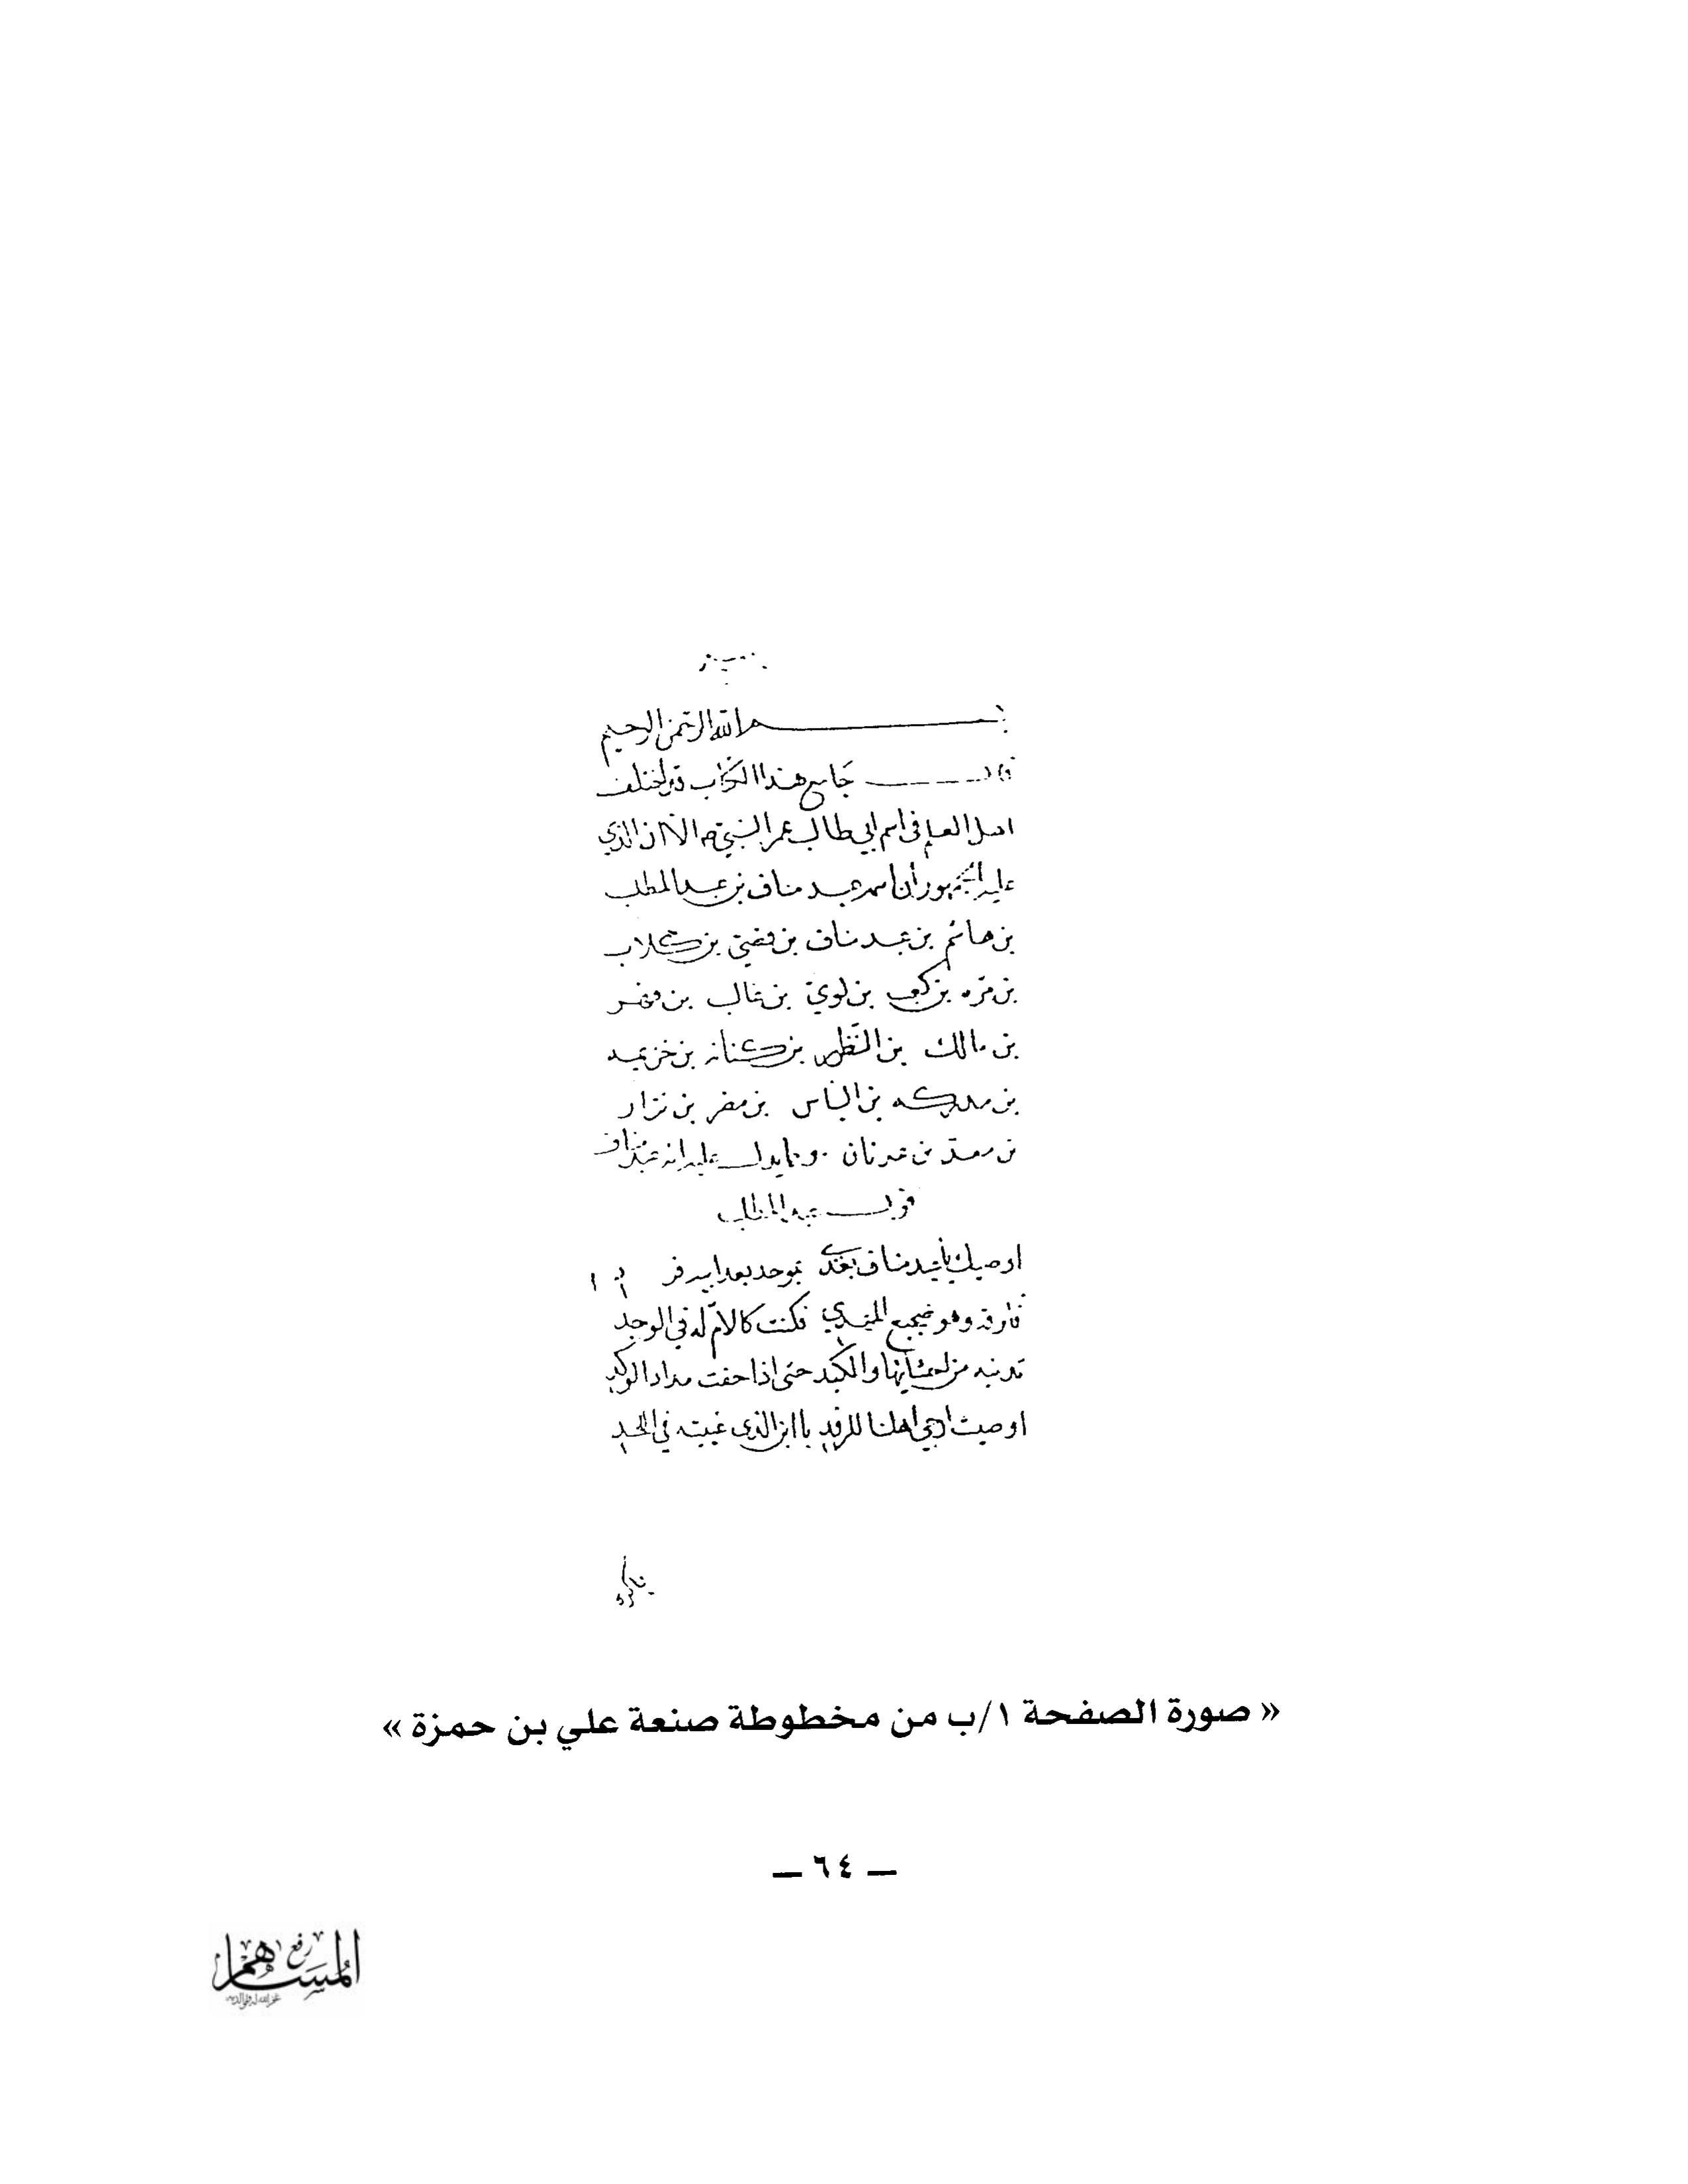 بسم الله الرحمن الرحيم
قال جامع هذا الكتاب قد اختلف
اهل العلم في اسم ابي طالب عم النبي ص الا ان الذي
عليه الجمهور أن اسمه عبد مناف بن عبد المطلب
بن هاشم بن عبد مناف بن قصيّ بن كلاب
بن مرّه بن كعب بن لويّ بن غالب بن فهر
بن مالك بن النّظر بن كنانه بن خزيمه
بن مدركه بن الياس بن مضر بن نزار
بن معدّ بن عدنان ومما يدل عليه انه عبد مناف
قول عبد المطلب
اوصيك يا عبد مناف بعدي بموحد بعد ابيه فرد
فارقه وهو ضجيع المهد فكنت كالامّ له في الوجد
تدنيه من احشايها والكبد حتى اذا خفت مداد الوعد
اوصيت ارجى اهلنا للرفد يا ابن الذي غيبته في اللحد
« صورة الصفحة ١/ب من مخطوطة صنعة علي بن حمزة »
— ٦٤ —
رفع
المساهم
غفر الله له ولوالديه